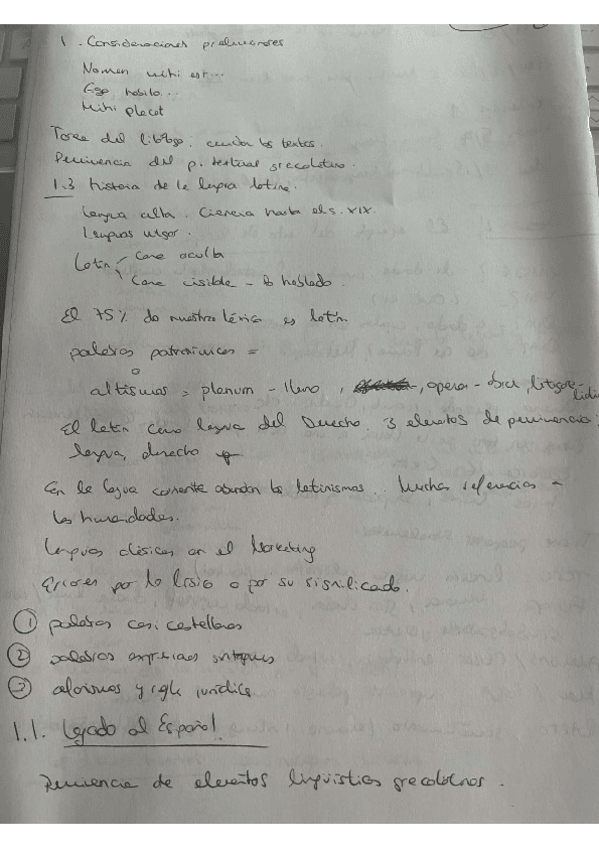 1. Consideraciones preliminares
Nomen mihi est...
Ego habito...
Mihi placet
Tarea del filólogo: cuidar los textos.
Pervivencia del p. textual grecolatino.
1.3 historia de la lengua latina.
Lengua culta. Ciencia hasta el s. XIX.
Lenguas vulgar.
Latín Cara oculta
Cara visible - lo hablado.
El 75% de nuestro léxico es latín.
palabras patrimoniales =
o
altísimas = planum - llano, opera - obra,
El latín como lengua del Derecho. 3 elementos de pervivencia:
lengua, derecho
En la lengua corriente abundan los latinismos. Muchas referencias a
las humanidades.
Lenguas clásicas en el Marketing
Errores por lo léxico o por su significado.
① palabras casi castellanas
② palabras sintagmas
③ aforismos y regla jurídica
1.1. Legado al Español.
Pervivencia de elementos lingüísticos grecolatinos.